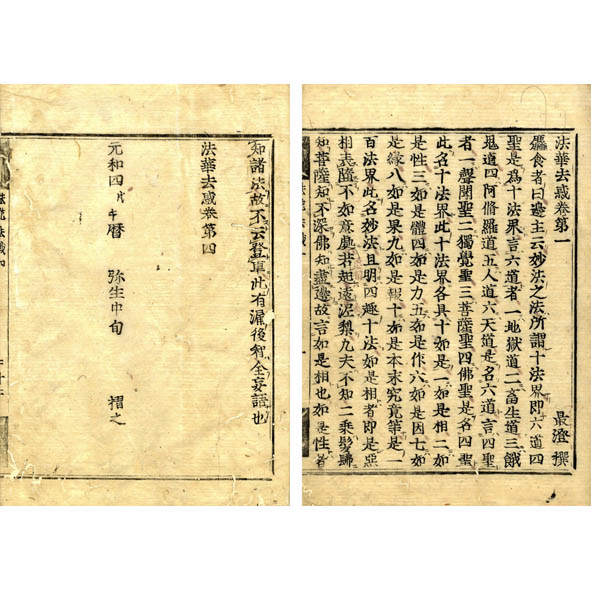 法華去惑卷第一
最澄撰
麁食者曰邊主云妙法之法所謂十法界即六道四
聖是爲十法界言六道者一地獄道二畜生道三餓
鬼道四阿脩羅道五人道六天道是名六道言四聖
者一聲聞聖二獨覺聖三菩薩聖四佛聖是名四聖
此名十法界此十法界各具十如是一如是相二如
是性三如是體四如是力五如是作六如是因七如
是緣八如是果九如是報十如是本末究竟等是一
百法界此名妙法且明四趣十法如是相者即是惡
相表墮不如意處非起遠泥梨凡夫不知二乘髣髴
知菩薩知不深佛知盡邊故言如是相也如是性者
知諸法故不云登車此有漏後智全妄語也
法華去惑卷第四
元和四戊午曆 弥生中旬 摺之